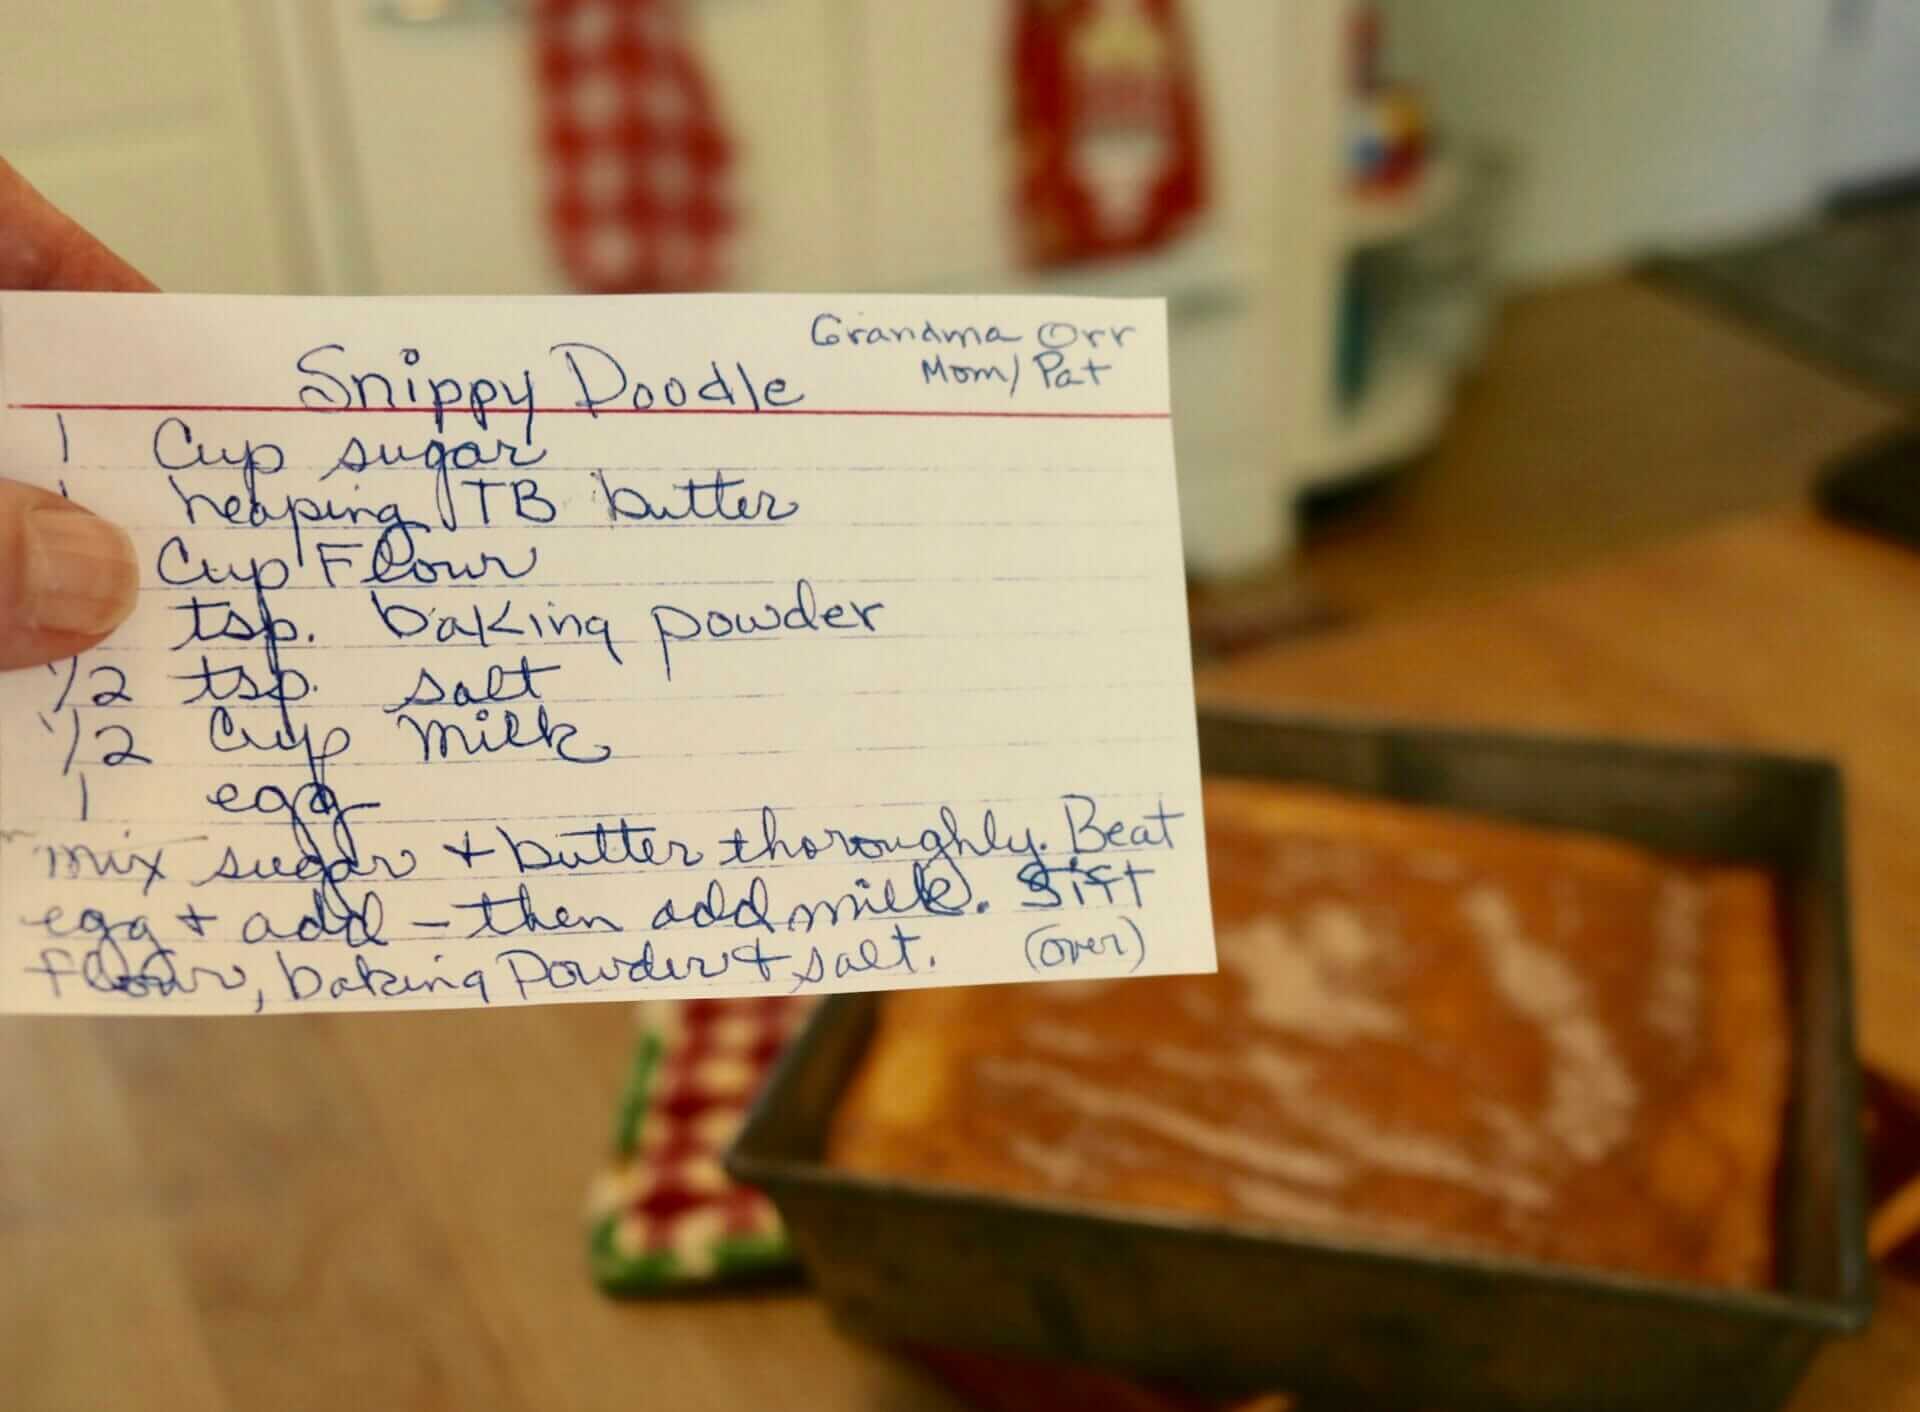 Grandma Orr
Mom/Pat
Snippy Doodle
1 Cup sugar
heaping TB butter
Cup Flour
tsp. baking powder
1/2 tsp. salt
1/2 Cup Milk
1 egg
mix sugar + butter thoroughly. Beat
egg + add - then add milk. Sift
flour, baking Powder + salt. (over)